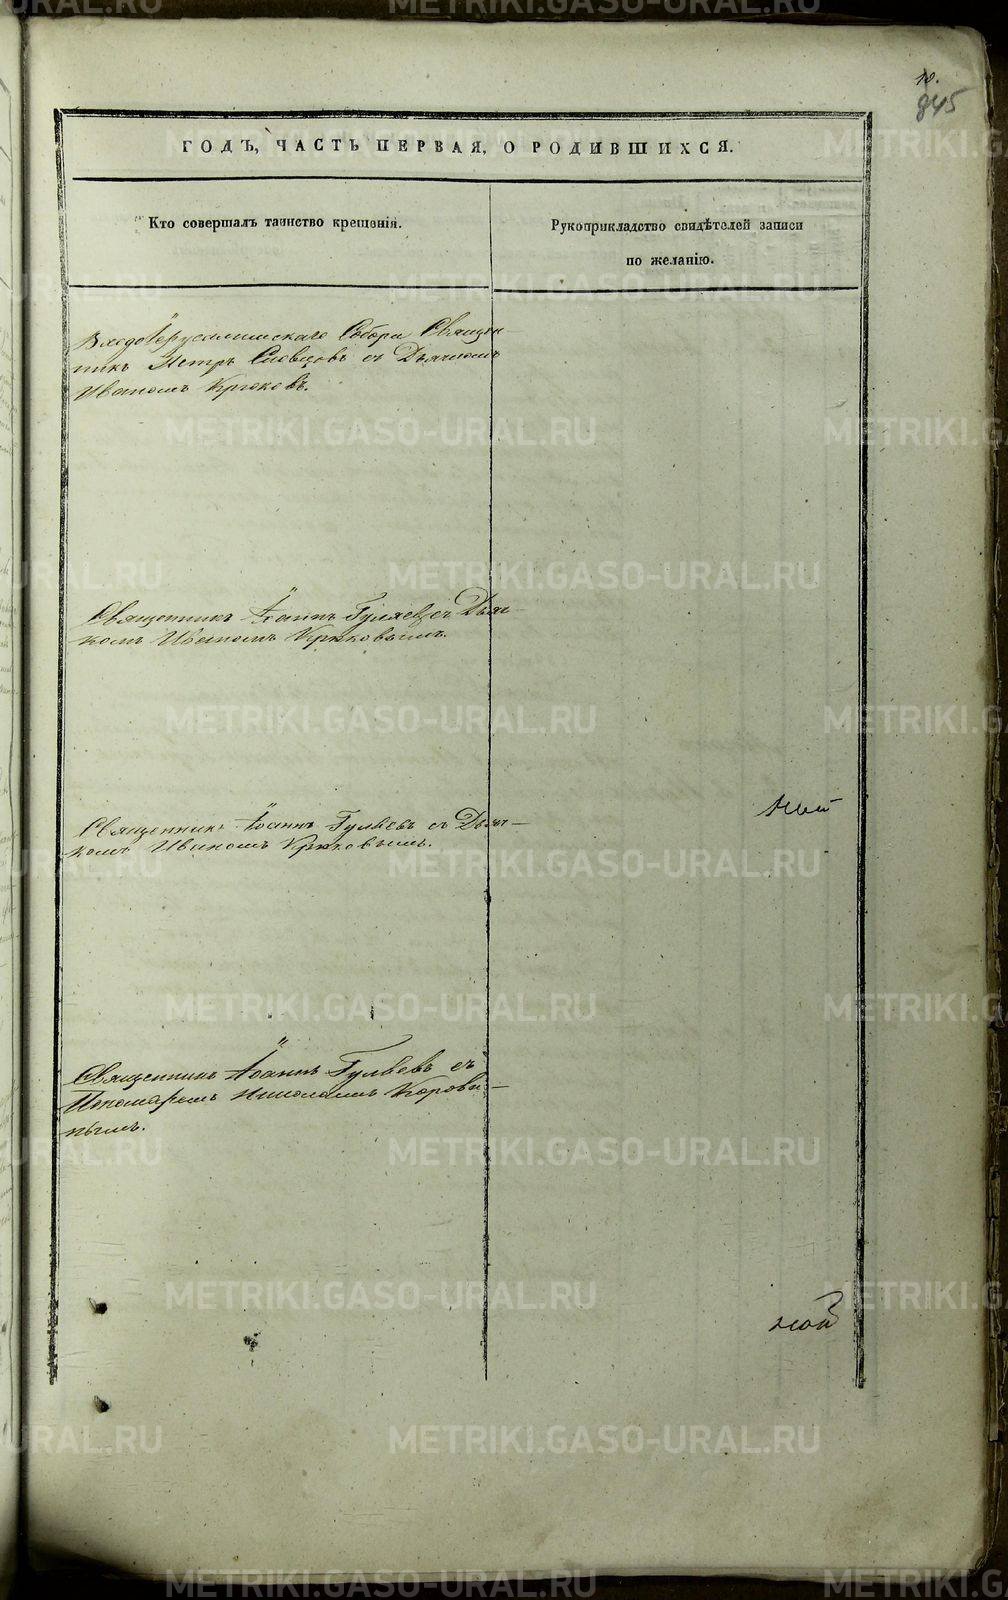 18.
845
ГОДЪ, ЧАСТЬ ПЕРВАЯ, О РОДИВШИХСЯ.
Кто совершалъ таинство крещенія.
Рукоприкладство свидѣтелей записи
по желанію.
Входоіерусалимскаго Собора Священ-
никъ Петръ Словцовъ съ Дьячкомъ
Иваномъ Крюковъ.
Священникъ Іоаннъ Гуляевъ съ Дьяч-
комъ Иваномъ Крюковымъ.
Священникъ Іоаннъ Гуляевъ съ Дьяч-
комъ Иваномъ Крюковымъ.
Священникъ Іоаннъ Гуляевъ съ
Пономаремъ Николаемъ Корови-
нымъ.
METRIKI.GASO-URAL.RU